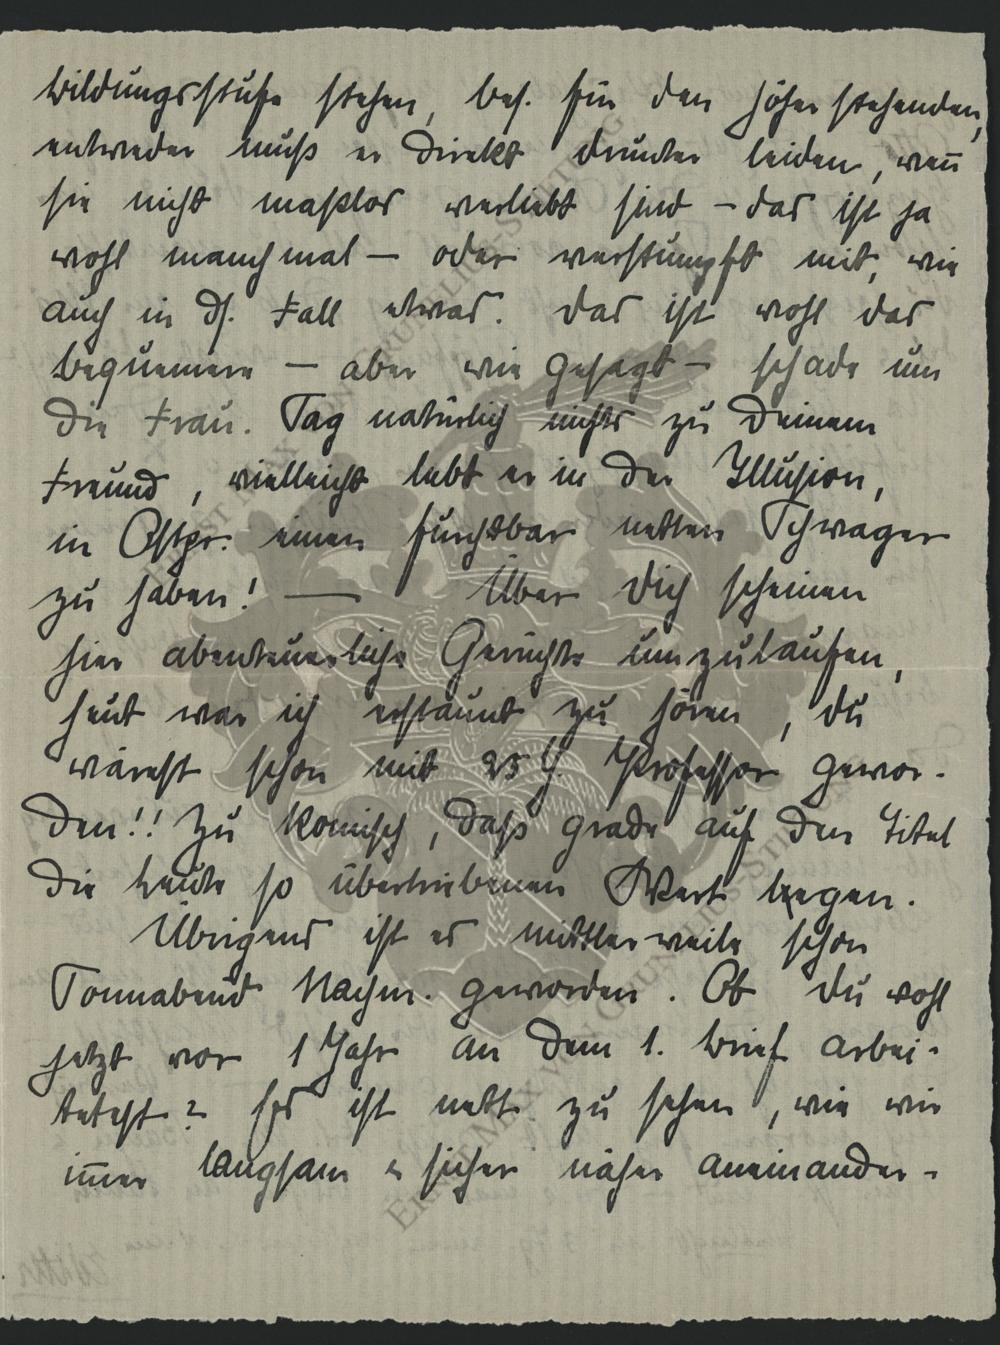 bildungsstufe stehen, bes. für den höher stehenden,
entweder muß er direkt drunter leiden, weñ
sie nicht maßlos verliebt sind – das ist ja
wohl manchmal – oder verstumpft mit, wie
auch in ds. Fall etwas. Das ist wohl das
bequemere – aber wie gesagt – schade um
die Frau. Sag natürlich nichts zu Deinem
Freund, vielleicht lebt er in der Illusion,
in Ostpr. einen furchtbar netten Schwager
zu haben! — Über Dich scheinen
hier abenteuerliche Gerüchte umzulaufen,
heut war ich erstaunt zu hören, du
wärest schon mit 25 J. Professor gewor-
den!! Zu komisch, daß grade auf den Titel
die Leute so übertriebenen Wert legen.
Übrigens ist es mittlerweile schon
Sonnabend Nachm. geworden. Ob du wohl
jetzt vor 1 Jahr an dem 1. Brief arbei-
tetest? Es ist nett zu sehen, wie wir
im̃er langsam & sicher näher aneinander-